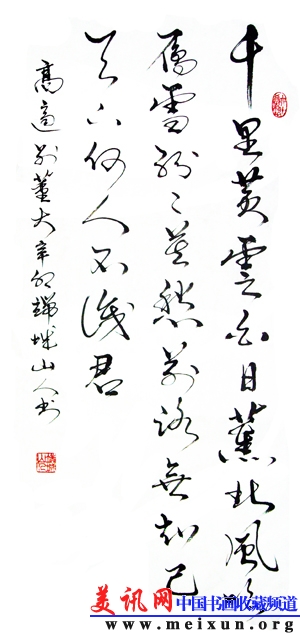 千里黄雲白日薰北風吹
雁雪紛〻莫愁前路無知己
天下何人不識君
高適別董大辛卯城山人书
美讯网 中国书画收藏频道
www.meixun.org